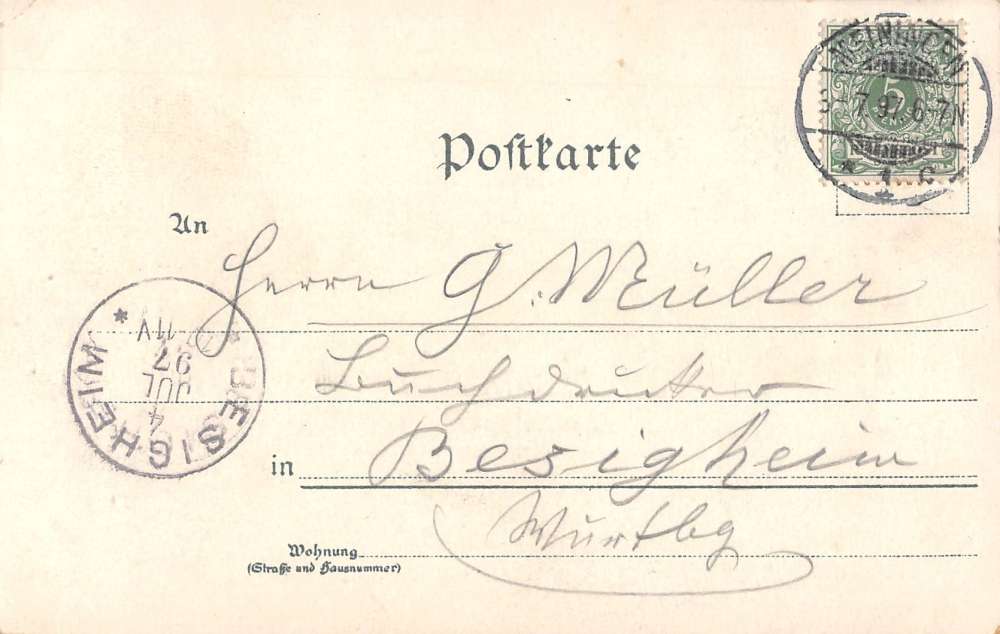 MEININGEN
3 7.97.6-7N
* 1 c *
5
Postkarte
An
Herrn G. Müller
Buchdrucker
in Besigheim
Württbg
Wohnung
(Straße und Hausnummer)
* BESIGHEIM *
4
JUL
97